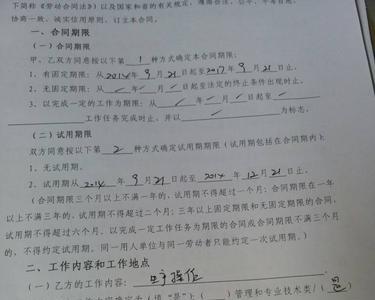 下简称《劳动合同法》以及国家和省的有关规定,遵循合法、公平、平等自愿、
协商一致、诚实信用原则,订立本合同。
一、合同期限
(一)合同期限
甲、乙双方同意按以下第 1 种方式确定本合同期限:
1、有固定期限:从 2014 年 9 月 21 日起至 2017 年 9 月 21 日止。
2、无固定期限:从 / 年 / 月 / 日起至法定的终止条件出现时止。
3、以完成一定的工作为期限:从 / 年 / 月 / 日起至 /
工作任务完成时止,并以 / 为标志。
(二)试用期限
双方同意按以下第 2 种方式确定试用期期限(试用期包括在合同期内):
1、无试用期。
2、试用期从 2014 年 9 月 21 日起至 2014 年 12 月 21 日止。
(合同期限三个月以上不满一年的,试用期不得超过一个月;合同期限在一年
以上不满三年的,试用期不得超过二个月;三年以上固定期限和无固定期限的合同,
试用期不得超过六个月。以完成一定工作任务为期限的合同或合同期限不满三个月
的,不得约定试用期。同一用人单位与同一劳动者只能约定一次试用期。)
二、工作内容和工作地点
(一)乙方的工作内容:
(填"是")( )管理和专业技术类/(是)